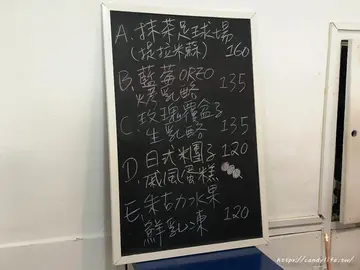 A. 抹茶足球場
(提拉米蘇) 160
B. 藍莓OREO
烤乳酪 135
C. 玫瑰覆盆子
生乳酪 135
D. 日式米團子 120
戚風蛋糕
E. 朱古力水果
鮮乳凍 120
https://candylife.tw/